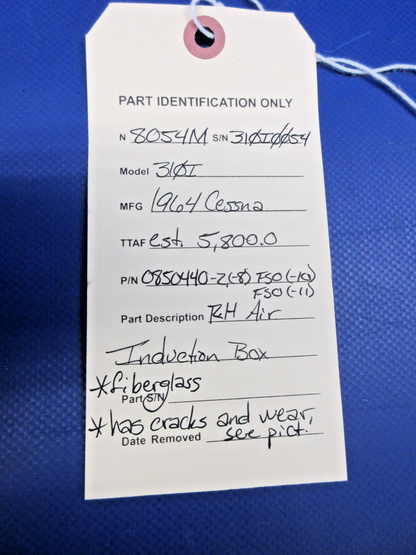 PART IDENTIFICATION ONLY
N 8054M S/N 310I0054
Model 310I
MFG 1964 Cessna
TTAF est. 5,800.0
P/N 0850440-2,(-8) FSO (-10)
FSO (-11)
Part Description RH Air
Induction Box
*fiberglass
Part S/N
*has cracks and wear,
Date Removed see pict.